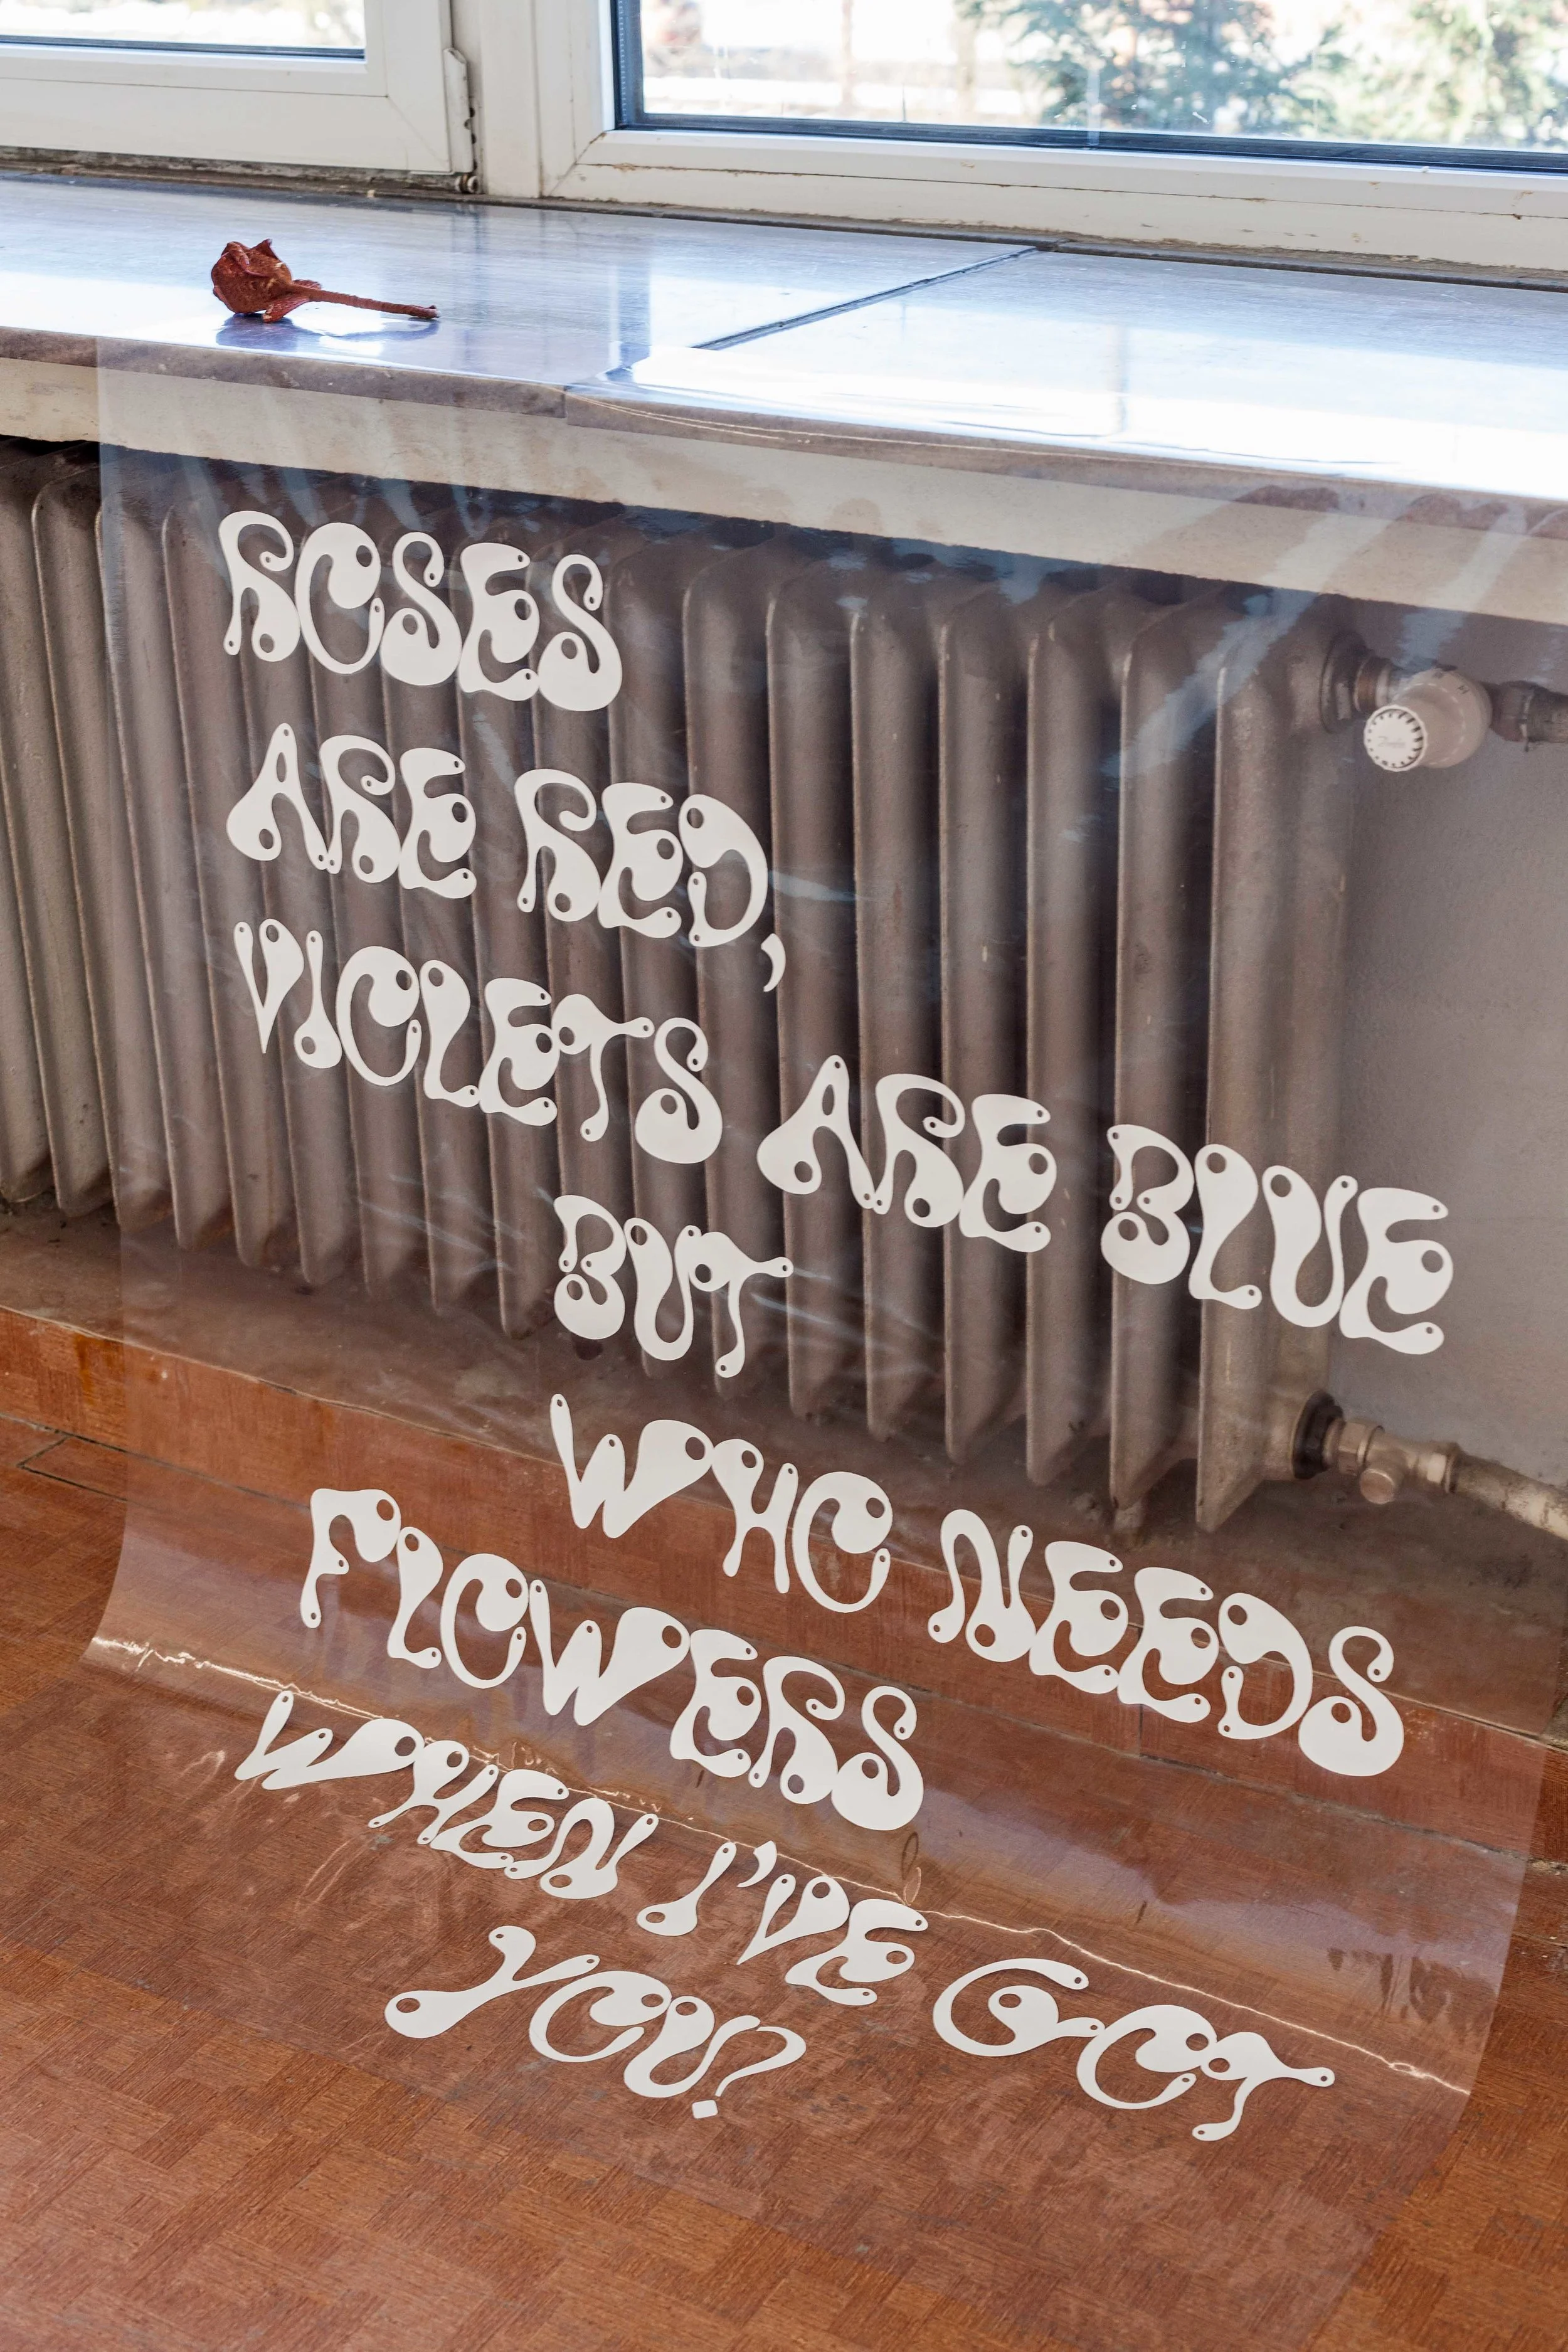 ROSES
ARE RED,
VIOLETS ARE BLUE
BUT
WHO NEEDS
FLOWERS
WHEN I'VE GOT
YOU?